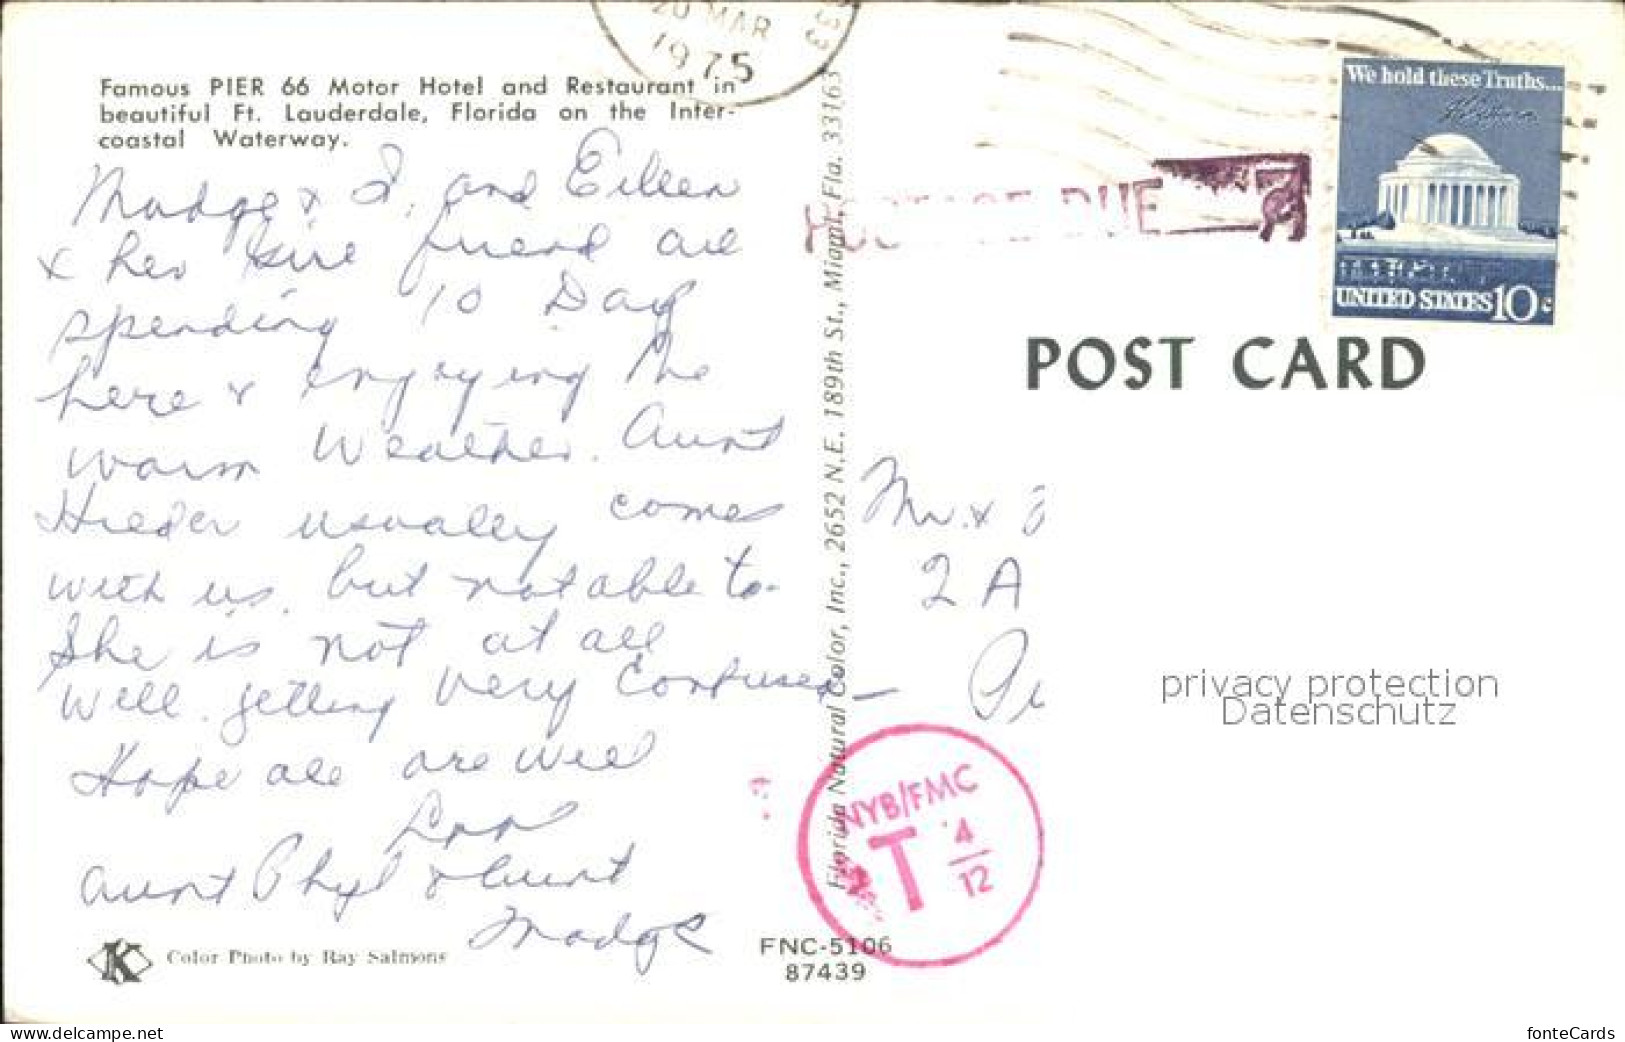 20 MAR
1975
Famous PIER 66 Motor Hotel and Restaurant in
beautiful Ft. Lauderdale, Florida on the Inter-
coastal Waterway.
Madge & I, and Eileen
& her friend are
spending 10 Day
here & enjoying the
warm Weather. Aunt
usually comes
with us, but not able to.
She is not at all
well. getting very Confused –
Hope all are well
Aunt Phyl & Aunt
Madge
Color Photo by Ray Salmons
FNC-5106
87439
Florida Natural Color, Inc., 2652 N.E. 189th St., Miami, Fla. 33163
POSTAGE DUE
We hold these Truths...
UNITED STATES 10c
POST CARD
Mr. &
2 A
privacy protection
Datenschutz
NYB/FMC
T 4
12
www.delcampe.net
fonteCards